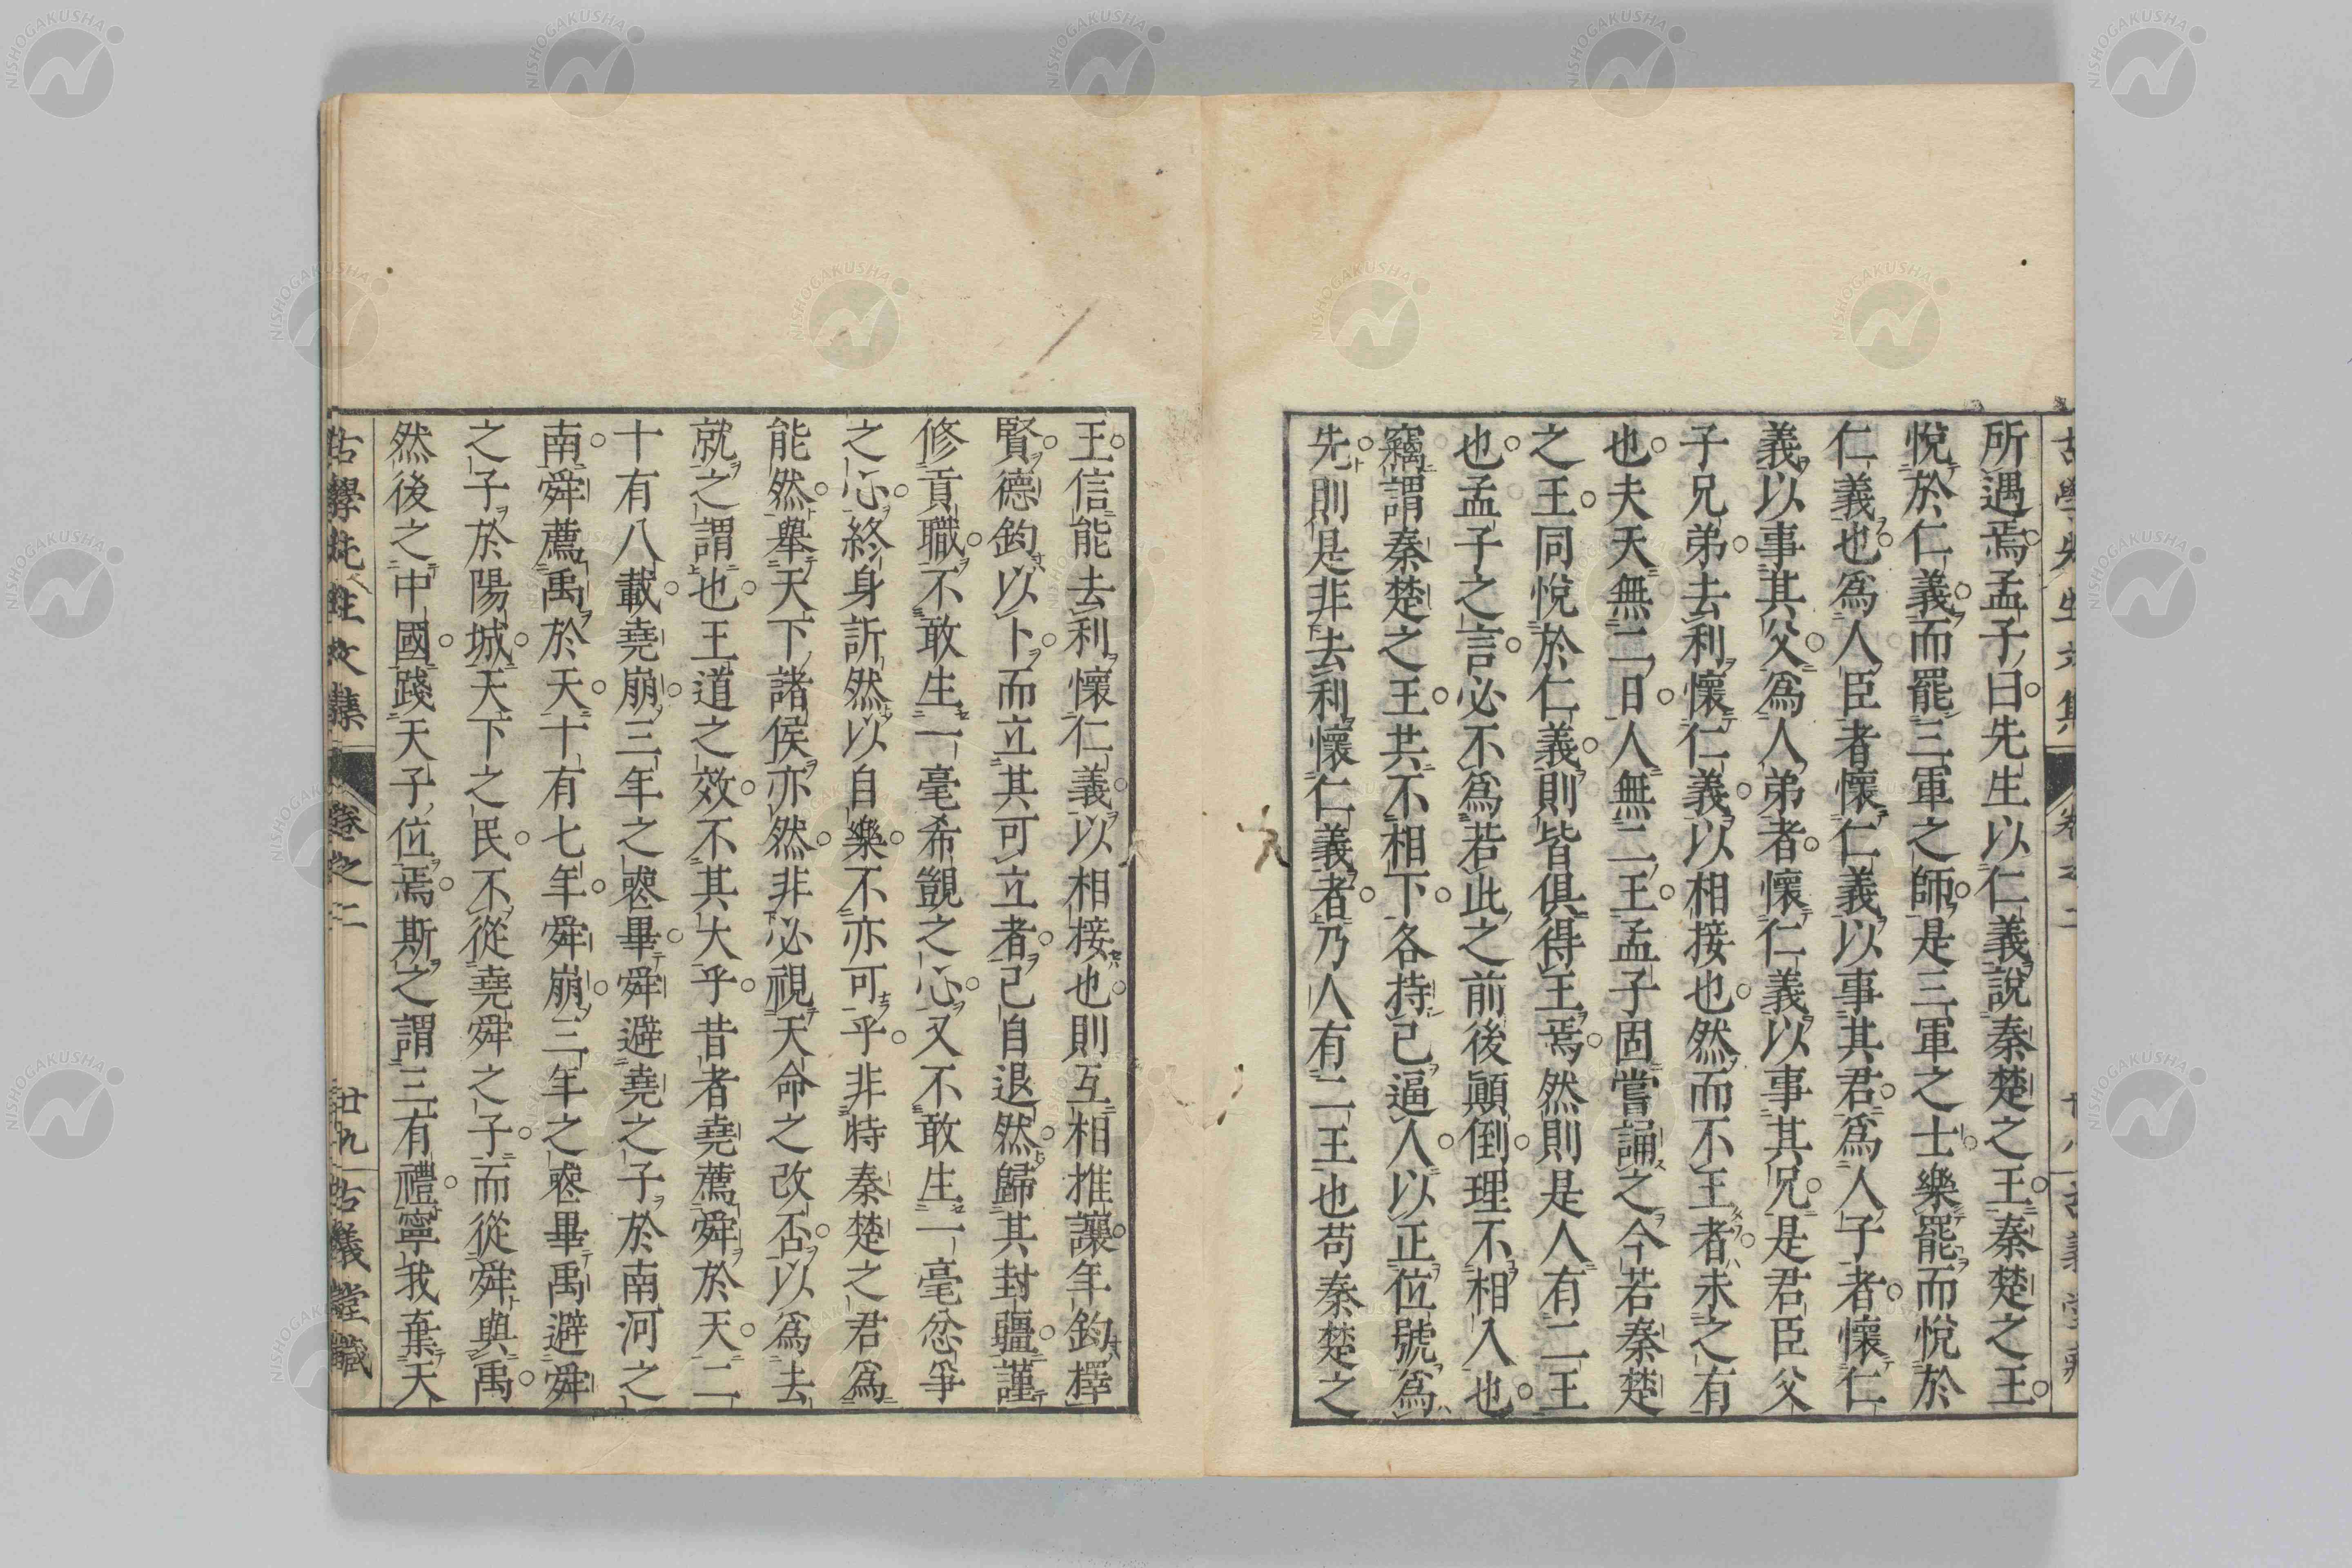 古學先生文集 卷之二 廿八 古義堂藏
所遇焉孟子曰先生以仁義說秦楚之王秦楚之王
悅於仁義而罷三軍之師是三軍之士樂罷而悅於
仁義也爲人臣者懷仁義以事其君爲人子者懷仁
義以事其父爲人弟者懷仁義以事其兄是君臣父
子兄弟去利懷仁義以相接也然而不王者未之有
也夫天無二日人無二王孟子固嘗誦之今若秦楚
之王同悅於仁義則皆俱得王焉然則是人有二王
也孟子之言必不爲若此之前後顚倒理不相入也
竊謂秦楚之王共不相下各持己逼人以正位號爲
先則是非去利懷仁義者乃人有二王也苟秦楚之
王信能去利懷仁義以相接也則互相推讓年鈞擇
賢德鈞以卜而立其可立者己自退然歸其封疆謹
修貢職不敢生一毫希覬之心又不敢生一毫忿爭
之心終身訢然以自樂不亦可乎非特秦楚之君爲
能然舉天下諸侯亦然非必視天命之改否以爲去
就之謂也王道之效不其大乎昔者堯薦舜於天二
十有八載堯崩三年之喪畢舜避堯之子於南河之
南舜薦禹於天十有七年舜崩三年之喪畢禹避舜
之子於陽城天下之民不從堯舜之子而從舜與禹
然後之中國踐天子位焉斯之謂三有禮寧我棄天
古學先生文集 卷之二 廿九 古義堂藏
NISHOGAKUSHA